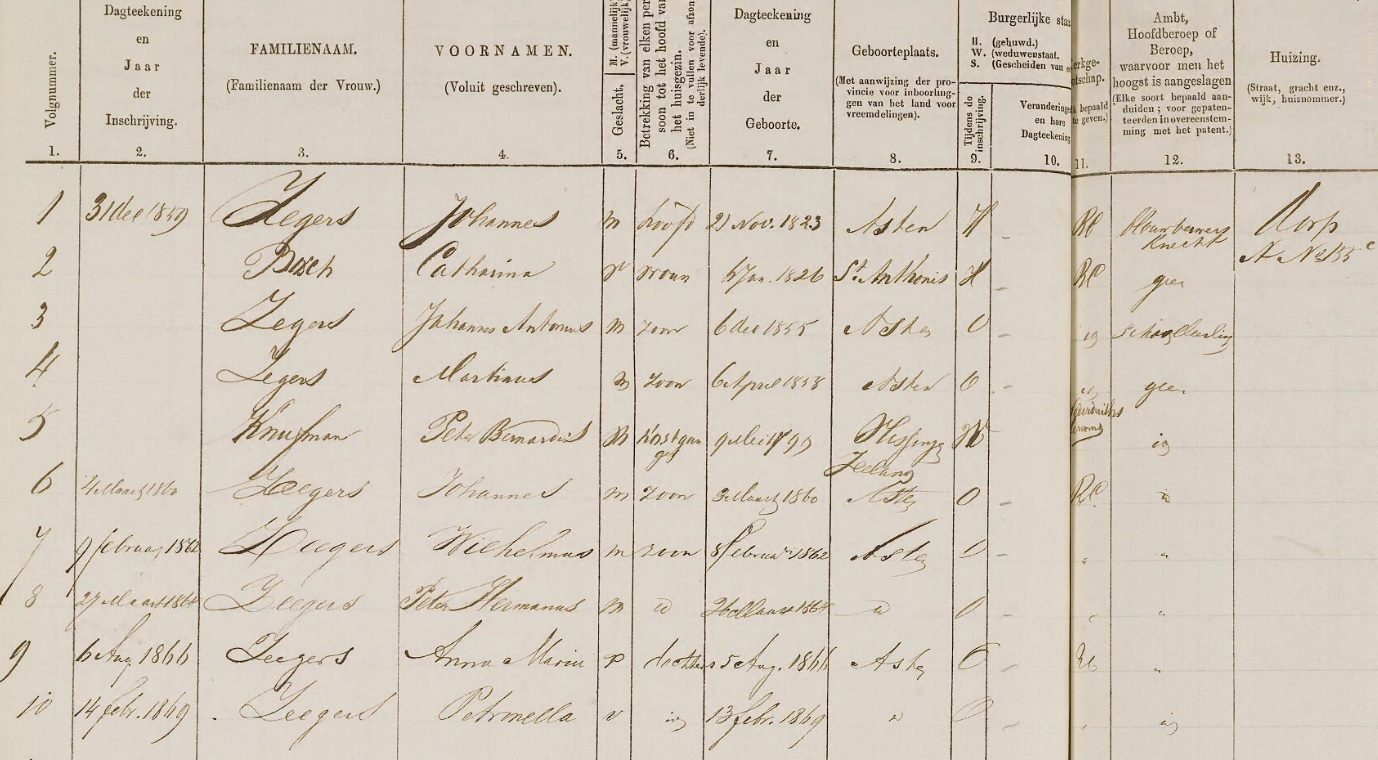 Dagteekening en Jaar der Inschrijving.
FAMILIENAAM. (Familienaam der Vrouw.)
VOORNAMEN. (Voluit geschreven).
M. (mannelijk) V. (vrouwelijk)
Dagteekening en Jaar der Geboorte.
Geboorteplaats. (Met aanwijzing der provincie voor inboorlingen van het land voor vreemdelingen).
Burgerlijke
H. (gehuwd.)
W. (weduwenstaat.
S. (Gescheiden van
Ambt, Hoofdberoep of Beroep, waarvoor men het hoogst is aangeslagen (Elke soort bepaald aanduiden; voor gepatenteerden in overeenstemming met het patent.)
Huizing. (Straat, gracht enz., wijk, huisnommer.)
Volgnummer.
Geslacht,
Betrekking van elken persoon tot het hoofd van het huisgezin. (Niet in te vullen voor afzonderlijk levende).
Tijdens de inschrijving.
Verandering en hare Dagteekening
1. 2. 3. 4. 5. 6. 7. 8. 9. 10. 11. 12. 13.
1 31 dec 1859 Zegers Johannes m hoofd 21 Nov. 1823 Asten H - RC knecht Dorp
2 Bosch Catharina v vrouw Jan. 1826 St Anthonis H RC geen
3 Zegers Johannes Antonius m zoon 6 dec 1855 Asten O - schoolleerling
4 Zegers Martinus m zoon 6 April 1858 Asten O - geen
5 Peter Bernardus m 1799 W -
Zeeland
6 Maart 1860 Zeegers Johannes m zoon 3 Maart 1860 Asten O - RC
7 9 februarij 1862 Zeegers Wilhelmus m zoon 8 februarij 1862 Asten O - "
8 27 Maart 1864 Zeegers Peter Hermanus m id Maart 1864 id O - "
9 6 Aug 1866 Zeegers Anna Maria v dochter 5 Aug. 1866 Asten O - RC "
10 14 febr. 1869 Zeegers Petronella v 13 febr. 1869 " O -